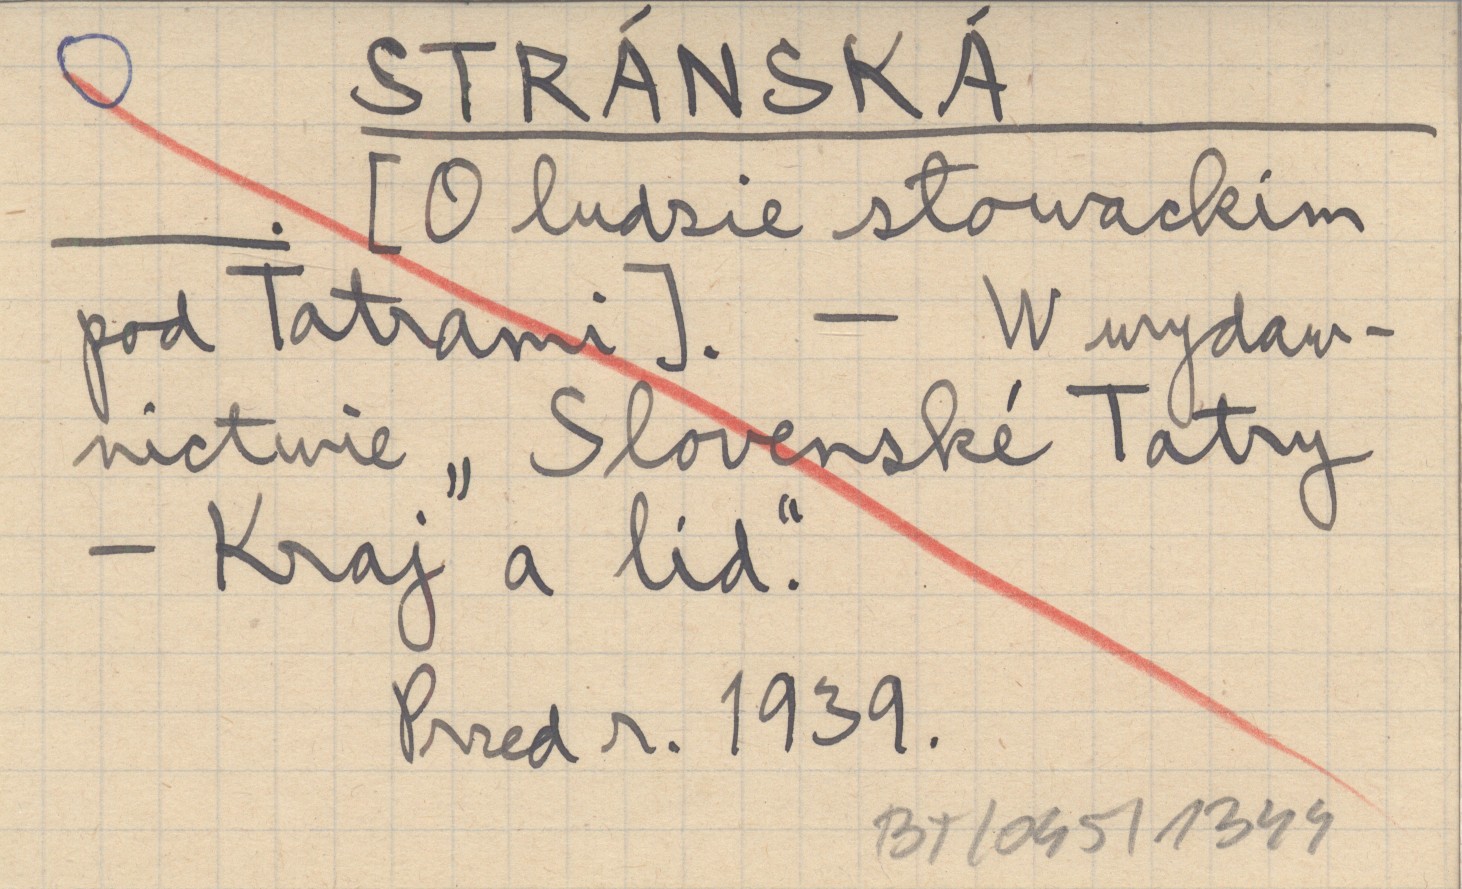 STRÁNSKÁ
. [O ludzie słowackim
pod Tatrami]. — W wydaw-
nictwie „Slovenské Tatry
— Kraj" a lid".
Przed r. 1939.
BT/045/1344